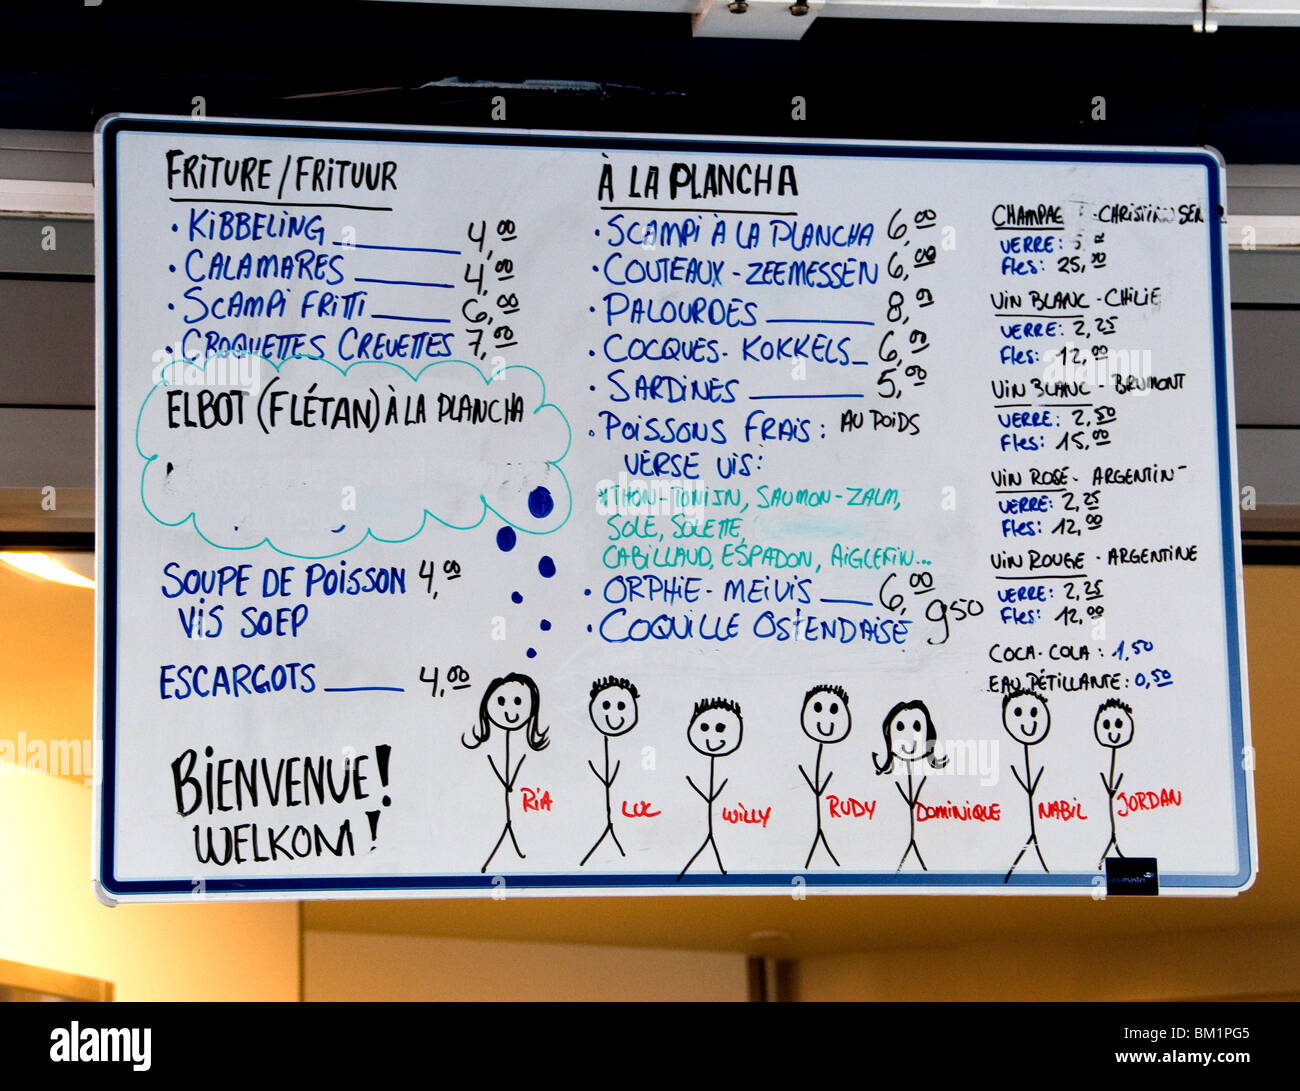 FRITURE/FRITUUR
• KIBBELING 4,00
• CALAMARES 4,00
• SCAMPI FRITTI 6,00
• CROQUETTES CREVETTES 7,00
ELBOT (FLÉTAN) À LA PLANCHA
SOUPE DE POISSON 4,00
VIS SOEP
ESCARGOTS 4,00
BIENVENUE!
WELKOM!
À LA PLANCHA
• SCAMPI À LA PLANCHA 6,00
• COUTEAUX - ZEEMESSEN 6,00
• PALOURDES 8,00
• COCQUES - KOKKELS 6,00
• SARDINES 5,00
• POISSONS FRAIS : AU POIDS
VERSE VIS :
* THON - TONIJN, SAUMON - ZALM,
SOLE, SOLETTE,
CABILLAUD, ESPADON, AIGLEFIN...
• ORPHIE - MEIVIS 6,00
• COQUILLE OSTENDAISE 9,50
CHAMPAG - CHRISTIANSEN
VERRE :
Fles : 25,00
VIN BLANC - CHILIE
VERRE : 2,25
Fles : 12,00
VIN BLANC - BRUMONT
VERRE : 2,50
Fles : 15,00
VIN ROSÉ - ARGENTIN
VERRE : 2,25
Fles : 12,00
VIN ROUGE - ARGENTINE
VERRE : 2,25
Fles : 12,00
COCA-COLA : 1,50
EAU PÉTILLANTE : 0,50
RIA
LUC
WILLY
RUDY
DOMINIQUE
NABIL
JORDAN
a
alamy
Image ID: BM1PG5
www.alamy.com